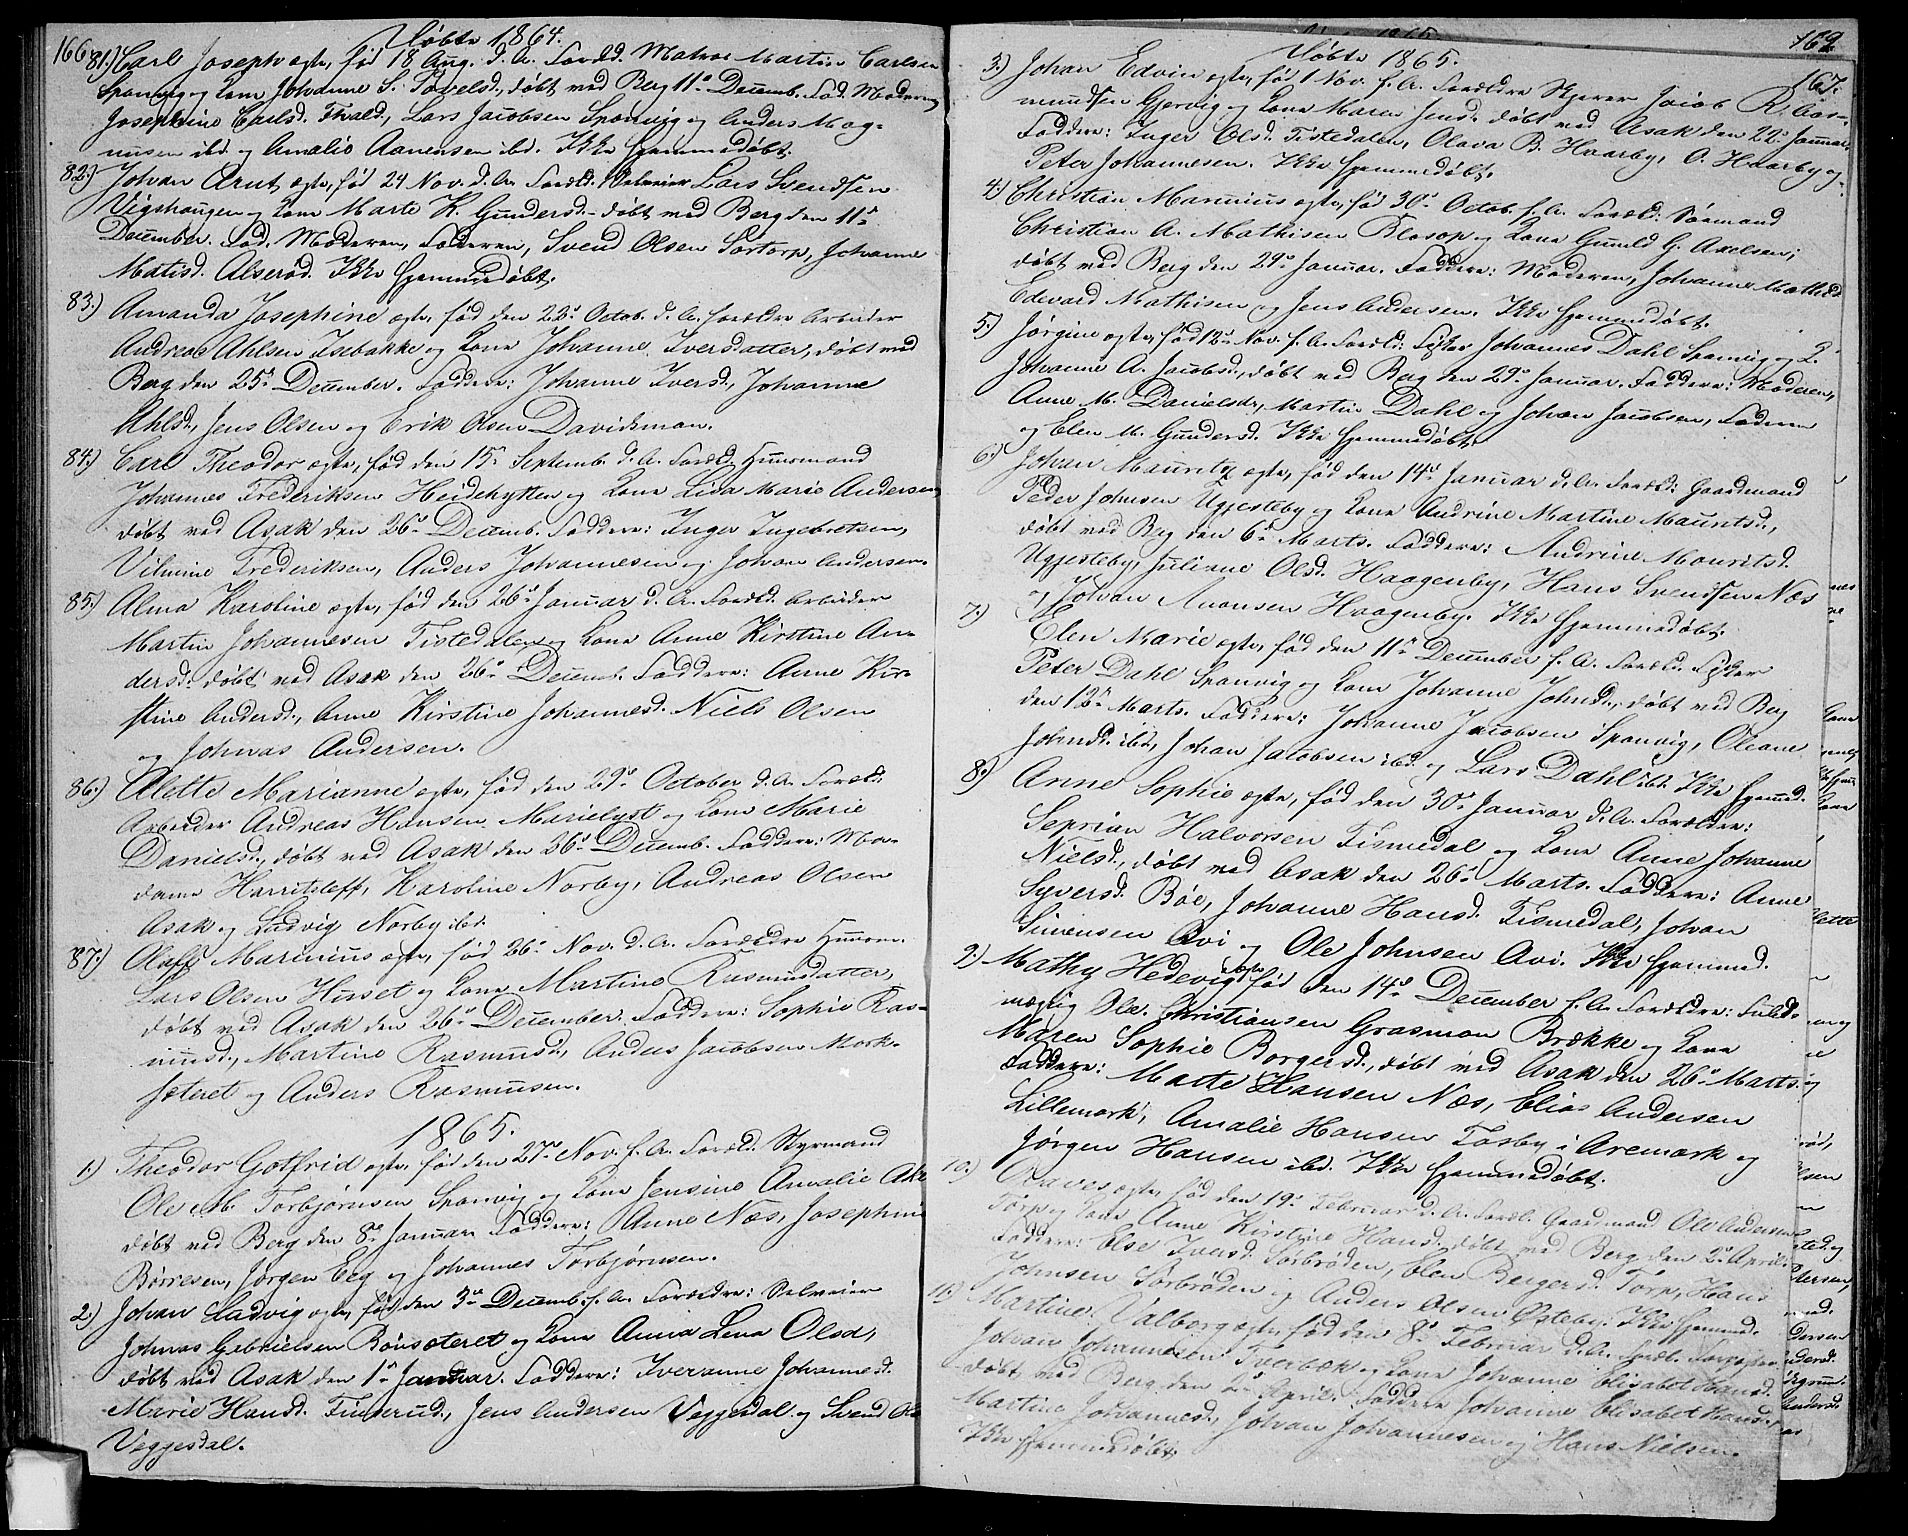 166
Døbte 1864.
81.) Carl Joseph ægte, fød 18 Aug. d. A. Foræld. Matros Martin Carlsen
Sponvig og Kone Johanne S. Povelsd., døbt ved Berg 11te Decemb. Fad. Moderen,
Josephine Carlsd. Lars Jacobsen Sponvig og Anders Mag-
nusen ibd. og Amalie Aanensen ibd. Ikke hjemmedøbt.
82.) Johan Arnt ægte, fød 24 Nov. d. A. Foræld. Selveier Lars Svendsen
Vigshaugen og Kone Marte K. Gundersd. døbt ved Berg den 11te
December. Fad. Moderen, Faderen, Svend Olsen Sortorp, Johanne
Matisd. Alserød. Ikke hjemmedøbt.
83.) Amanda Josephine ægte, fød den 22de Octob. d. A. Forældre Arbeider
Andreas Ahlsen Isebakke og Kone Johanne Iversdatter, døbt ved
Berg den 25de December. Faddere: Johanne Iversd., Johanne
Ahlsd., Jens Olsen og Erik Olsen Davidsman.
84.) Carl Theodor ægte, fød den 15de Septemb. d. A. Foræld. Huusmand
Johannes Frederiksen Heidehytten og Kone Lisa Marie Andersen
døbt ved Asak den 26de Decemb. Faddere: Inger Ingebretsen,
Vilmine Frederiksen, Anders Johannesen og Johan Andersen.
85.) Alma Karoline ægte, fød den 26de Januar d. A. Foræld. Arbeider
Martin Johannesen Tistedalen og Kone Anne Kirstine An-
dersd. døbt ved Asak den 26de Decemb. Faddere: Anne Kir-
stine Andersd., Anne Kirstine Johannesd. Niels Olsen
og Johnas Andersen.
86.) Alette Marianne ægte, fød den 29de October d. A. Foræld:
Arbeider Andreas Hansen Marielyst og Kone Marie
Danielsd., døbt ved Asak den 26de Decemb. Faddere: Ma-
dame Harritsleff, Karoline Norby, Andreas Olsen
Asak og Ludvig Norby ibd.
87.) Oluff Marinius ægte, fød 26de Nov. d. A. Forældre Huusm.
Lars Olsen Huset og Kone Martine Rasmusdatter,
døbt ved Asak den 26de December. Faddere: Sophie Ras-
musd., Martine Rasmusd., Anders Jacobsen Mork-
sæteret og Anders Rasmusen.
1865.
1.) Theodor Gotfrid ægte, fød den 27de Nov. f. A. Foræld. Styrmand
Ole M. Torbjørnsen Sponvig og Kone Jensine Amalie
døbt ved Berg den 8de Januar Faddere: Anne Næs, Josephine
Børresen, Jørgen Eeg og Johannes Torbjørnsen.
2.) Johan Ludvig ægte, fød den 3die Decemb. f. A. Forældre: Selveier
Johnas Gabrielsen Rønsæteret og Kone Anna Lena Olsd,
døbt ved Asak den 1te Januar. Faddere: Iveranne Johannesd.
Marie Hansd. Fuglerud, Jens Andersen Veggesdal og Svend
Veggesdal.
167.
Døbte 1865.
3.) Johan Edvin ægte, fød 1 Nov. f. A. Forældre Skipper Jacob R. Aas-
mundsen Gjervig og Kone Maren Jensd. døbt ved Asak den 22de Januar.
Faddere: Inger Olsd. Tistedalen, Olava B. Haarby, O. Haarby og
Peter Johannesen. Ikke hjemmedøbt.
4.) Christian Marinius ægte, fød 30te Octob. f. A. Foræld: Sømand
Christian A. Mathisen Blasop og Kone Gunild G. Axelsen;
døbt ved Berg den 29de Januar. Faddere: Moderen, Johanne Mathisd
Edevard Mathisen og Jens Andersen. Ikke hjemmedøbt.
5.) Jørgine ægte, fød 12te Nov. f. A. Foræld: Fisker Johannes Dahl Sponvig og K.
Johanne A. Jacobsd., døbt ved Berg den 29de Januar. Faddere: Moderen,
Anne M. Danielsdr, Martin Dahl og Johan Jacobsen, Faderen
og Elen M. Gundersd. Ikke hjemmedøbt.
6.) Johan Mauritz ægte, fød den 14de Januar d. A. Foræld: Gaardmand
Peder Johnsen Ugjesteby og Kone Andrine Martine Mauritsd.,
døbt ved Berg den 6te Marts. Faddere: Andrine Mauritsd.
Ugjesteby, Juliane Olsd. Haagenby, Hans Svendsen Næs
og Johan Haagenby. Ikke hjemmedøbt.
7.) Elen Marie ægte, fød den 11te December f. A. Foræld. Fisker
Peter Dahl Sponvig og Kone Johanne Johnsd., døbt ved Berg
den 12te Marts. Faddere: Johanne Jacobsen Sponvig, Oleane
Johnsd. ibd, Johan Jacobsen ibd. og Lars Dahl ibd. Ikke hjemmed.
8.) Anne Sophie ægte, fød den 30te Januar d. A. Forældre:
Seprian Halvorsen Tismedal og Kone Anne Johanne
Nielsd., døbt ved Asak den 26de Marts. Faddere: Anne
Syversd. Bøe, Johanne Hansd. Tismedal, Johan
Simensen Avi og Ole Johnsen Avi. Ikke hjemmed.
9.) Mathy Hedevig ægte fød den 14de December f. A. Forældre: Fuld-
mægtig Ole Christiansen Grasmon Brække og Kone
Maren Sophie Borgersd., døbt ved Asak den 26de Marts.
Faddere: Marte Hansen Næs, Elias Andersen og
Lillemark, Amalie Hansen Tosby i Aremark og
Jørgen Hansen ibd. Ikke hjemmedøbt.
10.) ægte, fød den 19de Februar d. A. Foræld. Gaardmand Ole Andersen
Torp og Kone Anne Kirstine Hansd. døbt ved Berg den 2den April.
Faddere: Else Iversd. Sørbrøden, Elen Bergersd. Torp, Hans
Johnsen Sørbrøden og Anders Olsen Østeby. Ikke hjemmed.
11.) Martine Valborg ægte, fød den 8de Februar d. A. Foræld.
Johan Johannesen Tverbæk og Kone Johanne Elisabet Hansd.
døbt ved Berg den 2den April. Faddere Johanne Elisabet Hansd.,
Martine Johannesd., Johan Johannesen og Hans Nielsen.
Ikke hjemmedøbt.